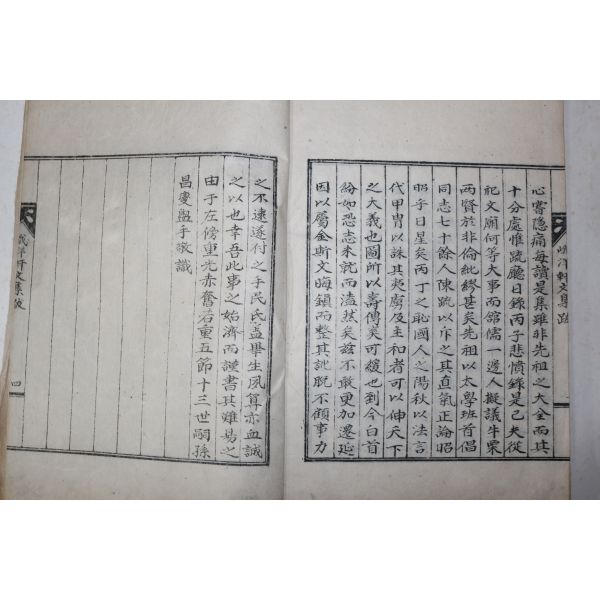 心嘗隐痛每讀是集雖非先祖之大全而其
十分處惟疏聽日錄丙子悲憤錄是已矣從
祀文廟何等大事而館儒一邊人擬議牛栗
两賢於非倫紕繆甚矣先祖以太學班首倡
同志七十餘人陳疏以斥之其直氣正論昭
昭乎日星矣丙丁之恥國人之陽秋以法言
代甲冑以誅其夷虜及主和者可以伸天下
之大義也圖所以壽傳矣可緩也到今白首
紛如恐志未就而溘然矣玆不敢更加遷延
因以屬金斯文晦鎭而整其訛脫不顧事力
之不逮遂付之手民氏盖畢生夙算亦血誠
之以也幸吾此事之始濟而謹書其難易之
由于左傍重光赤奮若重五節十三世嗣孫
昌慶盥手敬識
軒文集 跋
四